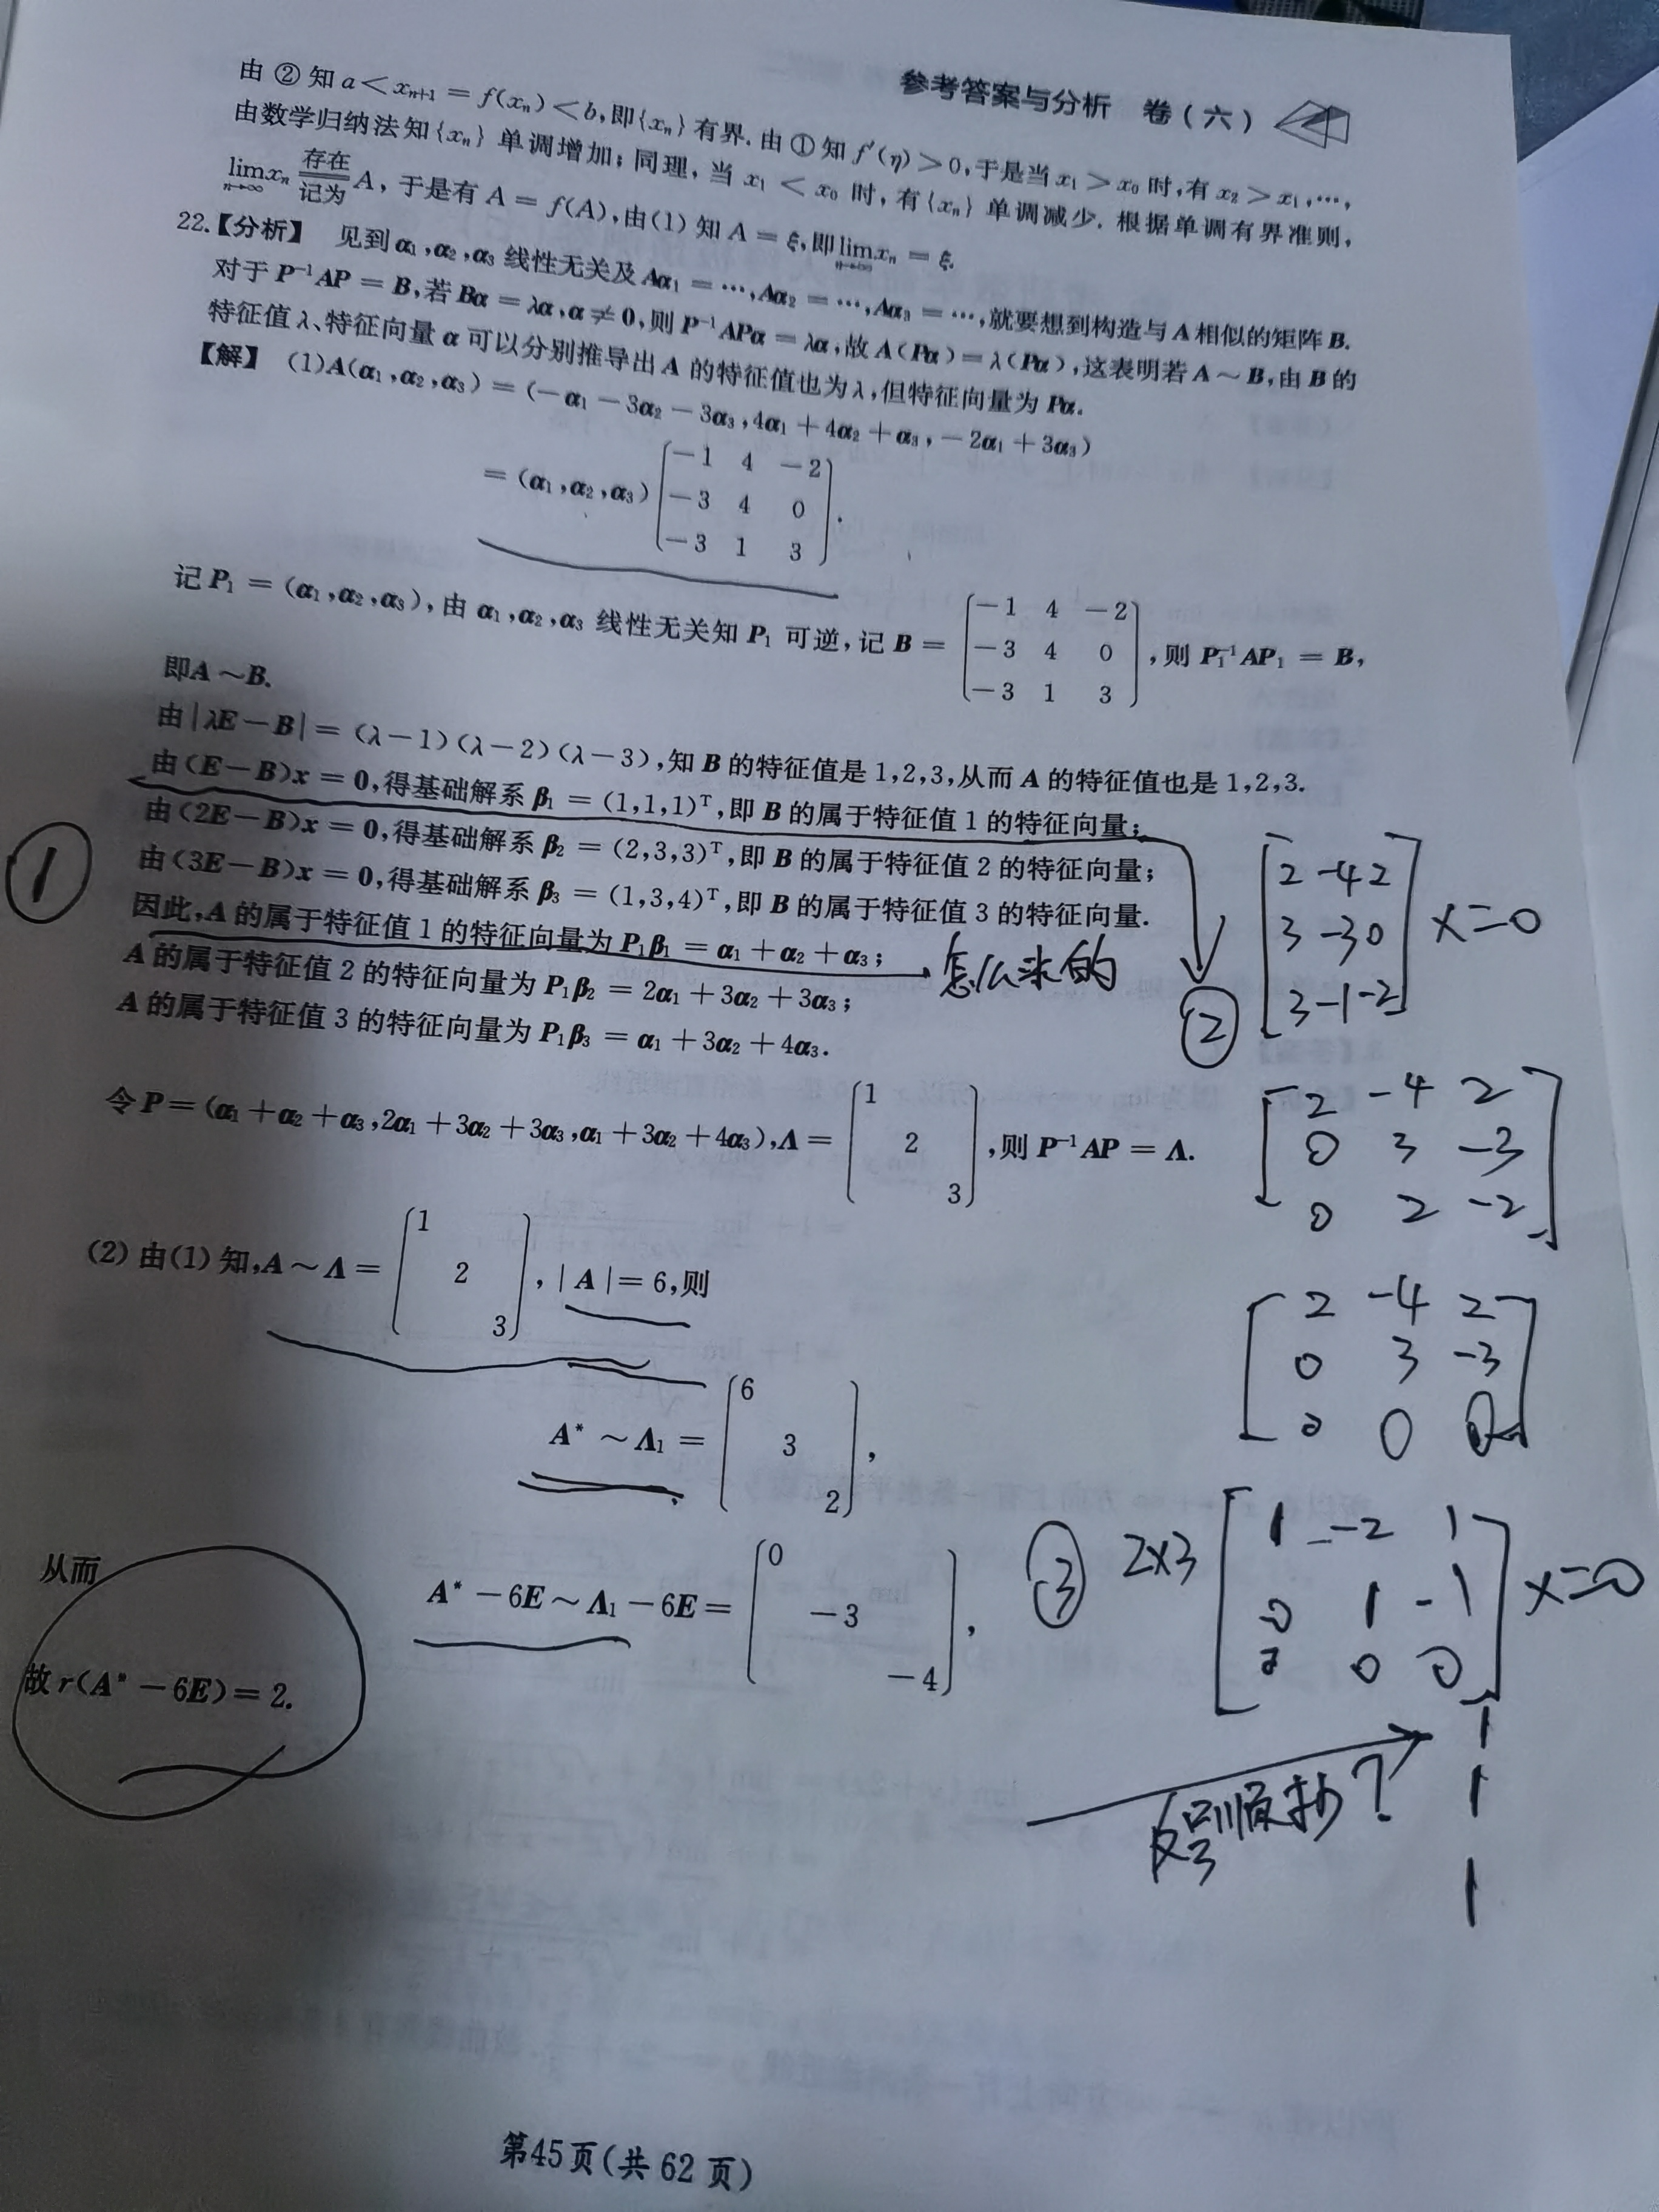 参考答案与分析 卷(六)
由 ② 知 a < xₙ₊₁ = f(xₙ) < b,即{xₙ} 有界. 由 ① 知 f′(η) > 0,于是当 x₁ > x₀ 时,有 x₂ > x₁,…,
由数学归纳法知{xₙ} 单调增加; 同理, 当 x₁ < x₀ 时, 有{xₙ} 单调减少. 根据单调有界准则,
lim xₙ 存在 记为 A, 于是有 A = f(A),由(1) 知 A = ξ,即 lim xₙ = ξ.
n→∞ n→∞
22.【分析】 见到 α₁,α₂,α₃ 线性无关及 Aα₁ = …,Aα₂ = …,Aα₃ = …,就要想到构造与 A 相似的矩阵 B.
对于 P⁻¹AP = B,若 Bα = λα,α ≠ 0,则 P⁻¹APα = λα,故 A(Pα) = λ(Pα),这表明若 A ~ B,由 B 的
特征值 λ、特征向量 α 可以分别推导出 A 的特征值也为 λ,但特征向量为 Pα.
【解】 (1)A(α₁,α₂,α₃) = (−α₁ − 3α₂ − 3α₃,4α₁ + 4α₂ + α₃,−2α₁ + 3α₃)
−1 4 −2
= (α₁,α₂,α₃) −3 4 0 .
−3 1 3
−1 4 −2
记 P₁ = (α₁,α₂,α₃),由 α₁,α₂,α₃ 线性无关知 P₁ 可逆,记 B = −3 4 0 ,则 P₁⁻¹AP₁ = B,
−3 1 3
即A ~ B.
由 | λE − B | = (λ − 1)(λ − 2)(λ − 3),知 B 的特征值是 1,2,3,从而 A 的特征值也是 1,2,3.
由(E − B)x = 0,得基础解系 β₁ = (1,1,1)ᵀ,即 B 的属于特征值 1 的特征向量;
由(2E − B)x = 0,得基础解系 β₂ = (2,3,3)ᵀ,即 B 的属于特征值 2 的特征向量;
由(3E − B)x = 0,得基础解系 β₃ = (1,3,4)ᵀ,即 B 的属于特征值 3 的特征向量.
①
因此,A 的属于特征值 1 的特征向量为 P₁β₁ = α₁ + α₂ + α₃;
怎么来的
A 的属于特征值 2 的特征向量为 P₁β₂ = 2α₁ + 3α₂ + 3α₃;
A 的属于特征值 3 的特征向量为 P₁β₃ = α₁ + 3α₂ + 4α₃.
1
令 P = (α₁ + α₂ + α₃,2α₁ + 3α₂ + 3α₃,α₁ + 3α₂ + 4α₃),Λ = 2 ,则 P⁻¹AP = Λ.
3
1
(2) 由(1) 知,A ~ Λ = 2 , | A | = 6,则
3
6
A* ~ Λ₁ = 3 ,
2
从而
0
A* − 6E ~ Λ₁ − 6E = −3 ,
−4
故 r(A* − 6E) = 2.
②
2 -4 2
3 -3 0 x=0
3 -1 -2
2 -4 2
0 3 -3
0 2 -2
2 -4 2
0 3 -3
0 0 0
③ 2×3
1 -2 1
0 1 -1 x=0
0 0 0
1
1
1
反号顺抄?
第45页(共 62 页)